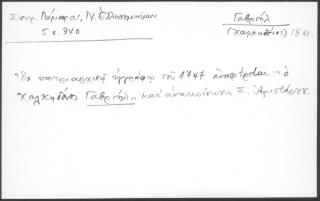 Σπυρ. Λάμπρος, Ν. Ἑλληνομνήμων
5 σ. 340
Γαβριήλ
(Χαλκηδόνος)
"Ἐν πατριαρχικῷ ἐγγράφῳ τοῦ 1747 ἀναφέρεται "ὁ
Χαλκηδόνος Γαβριήλ" κατ' ἀνακοίνωσιν Σ. Ἀριστάρχου.